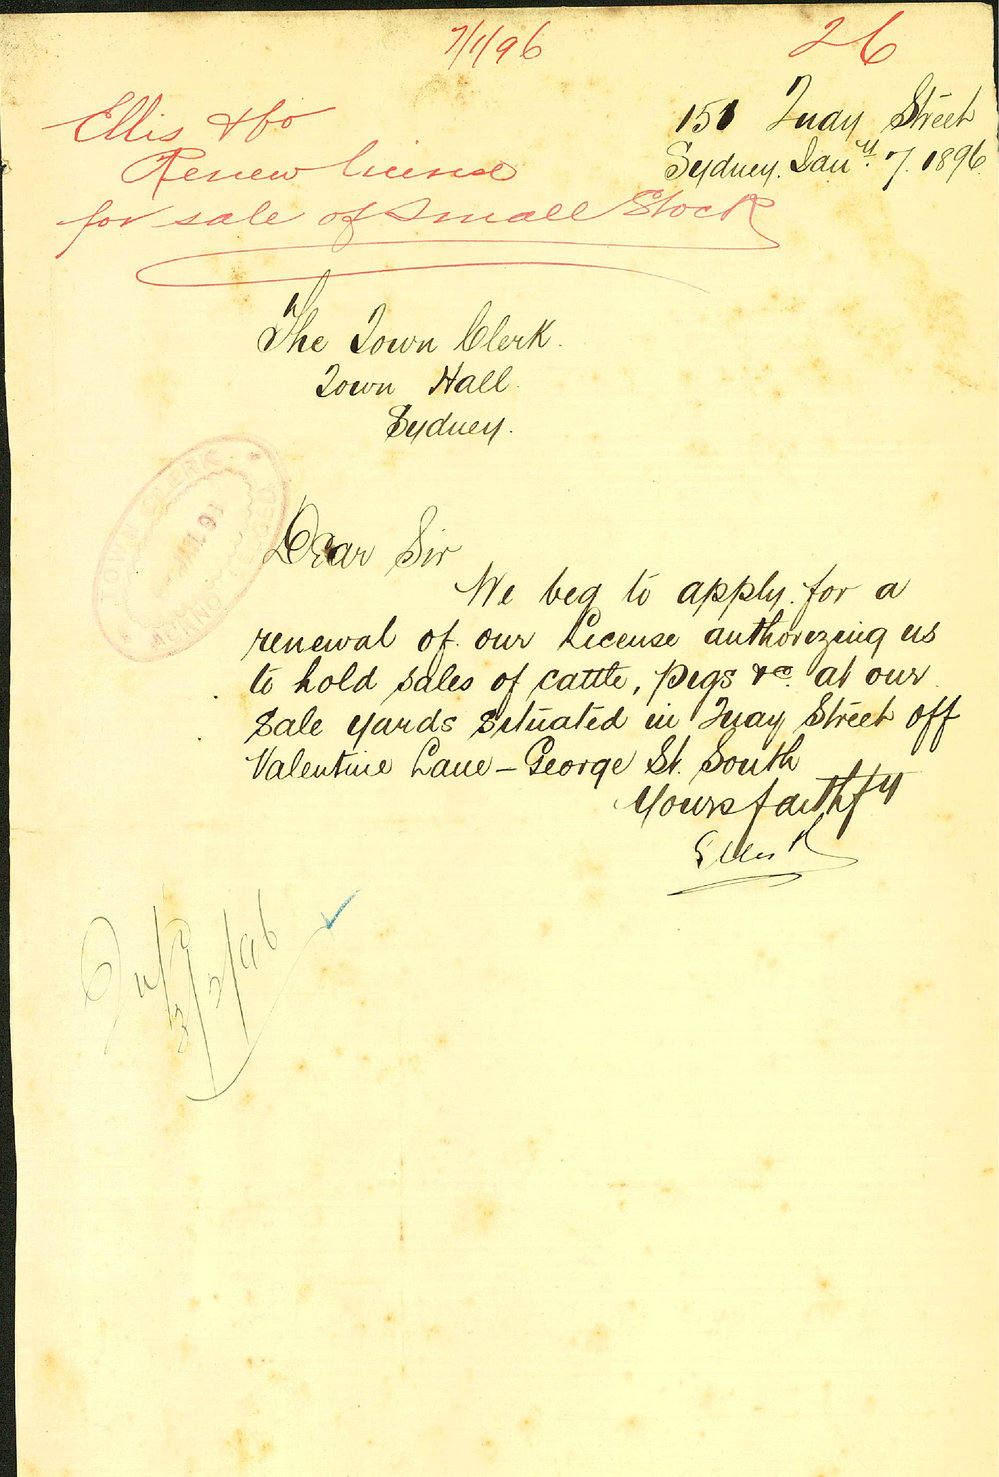 7/1/96
26
Ellis & Co
Renew license
for sale of Small Stock
151 Quay Street
Sydney. Jany. 7. 1896
The Town Clerk.
Town Hall
Sydney.
TOWN CLERK
Dear Sir
We beg to apply for a
renewal of our License authorizing us
to hold sales of cattle, pigs &c. at our
Sale yards situated in Quay Street off
Valentine Lane – George St. South
Yours faithfly
3/2/96